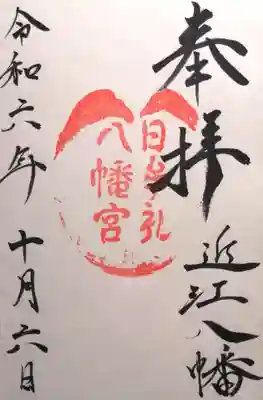 奉拝
近江八幡
日牟礼
八幡宮
令和六年 十月六日